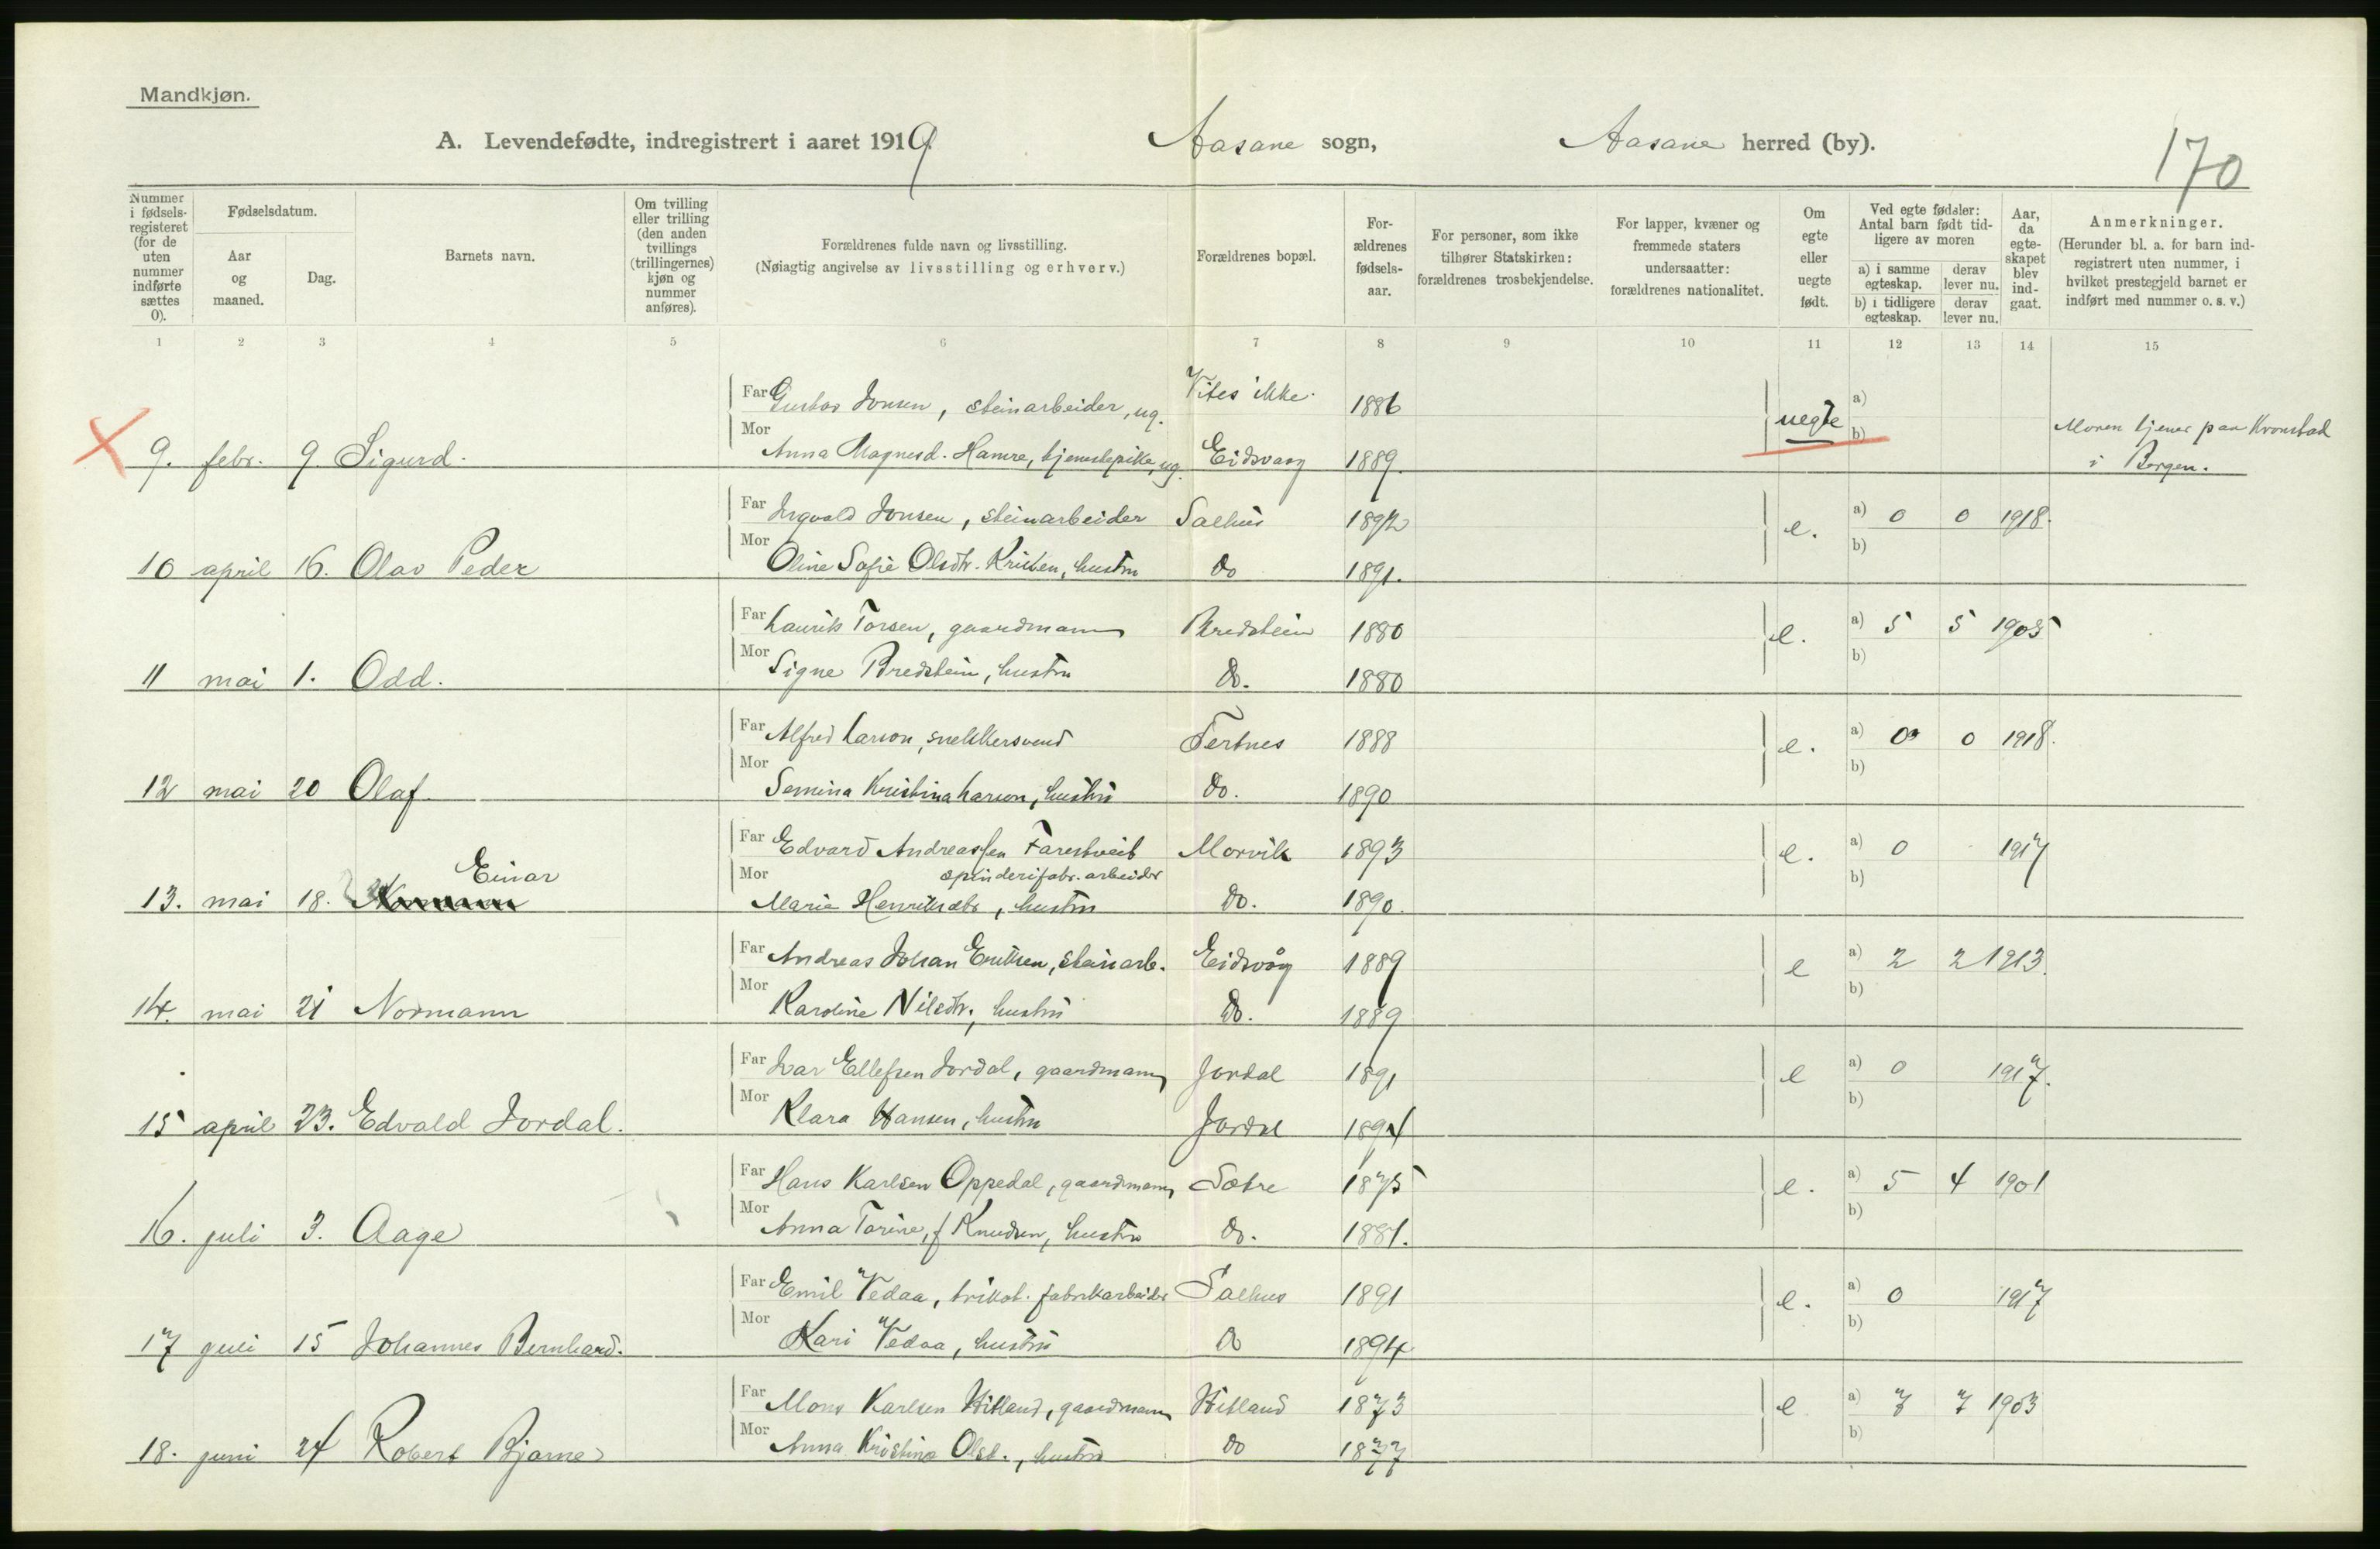 Mandkjøn.
A. Levendefødte, indregistrert i aaret 1919. Aasane sogn, Aasane herred (by). 170
Nummer i fødsels-registeret (for de uten nummer indførte sættes 0).
Fødselsdatum.
Aar og maaned.
Dag.
Barnets navn.
Om tvilling eller trilling (den anden tvillings (trillingernes) kjøn og nummer anføres).
Forældrenes fulde navn og livsstilling.
(Nøiagtig angivelse av livsstilling og erhverv.)
Forældrenes bopæl.
For-ældrenes fødsels-aar.
For personer, som ikke tilhører Statskirken: forældrenes trosbekjendelse.
For lapper, kvæner og fremmede staters undersaatter: forældrenes nationalitet.
Om egte eller uegte født.
Ved egte fødsler: Antal barn født tid-ligere av moren
a) i samme egteskap. derav lever nu.
b) i tidligere egteskap. derav lever nu.
Aar, da egte-skapet blev ind-gaat.
Anmerkninger.
(Herunder bl. a. for barn ind-registrert uten nummer, i hvilket prestegjeld barnet er indført med nummer o. s. v.)
1 2 3 4 5 6 7 8 9 10 11 12 13 14 15
Far Gustav Jonsen, steinarbeider, ug. Vites ikke. 1886 uegte a)
Mor b) Moren tjener paa Kronstad
9. febr. 9. Sigurd. Anna Magnesd. Hamre, tjenestepike, ug. Eidsvaag 1889. i Bergen.
Far Ingvald Jonsen, steinarbeider Salhus 1892 e. a) 0 0 1918.
Mor b)
10 april 16. Olav Peder Oline Sofie Olsdtr. , hustru do 1891.
Far Laurits Torsen, gaardmann Bredstein 1880 e. a) 5 5 1905
Mor b)
11 mai 1. Odd. Signe Bredstein, hustru do. 1880
Far Alfred Larson, snekkersvend Tertnes 1888 e. a) 0 0 1918.
Mor b)
12 mai 20 Olaf. Semina Kristina Larson, hustru do. 1890
Far Edvard Andreassen Farestveit Morvik 1893 e. a) 0 1917
Mor spinderifabr. arbeider b)
Einar
13. mai 18. Marie Henriksdtr, hustru do. 1890.
Far Andreas Johan Eriksen, steinarb. Eidsvåg 1889 e a) 2 2 1913.
Mor b)
14. mai 21 Normann Karoline Nilsdtr., hustru do. 1889
Far Ivar Ellefsen Jordal, gaardmann Jordal 1891 e a) 0 1917.
Mor b)
15 april 23. Edvald Jordal. Klara Hansen, hustru Jordal 1894
Far Hans Karlsen Oppedal, gaardmann Sætre 1875 e. a) 5 4 1901
Mor b)
16. juli 3. Aage Anna Tarine, f Knudsen, hustru do. 1881.
Far Emil Vedaa, trikot. fabrikarbeider Salhus 1891 e. a) 0 1917
Mor b)
17 juli 15 Johannes Bernhard. Kari Vedaa, hustru do 1894
Far Mons Karlsen Hitland, gaardmann Hitland 1873 e a) 7 7 1903
Mor b)
18. juni 24 Robert Bjarne Anna Kristina Olsd., hustru do 1877